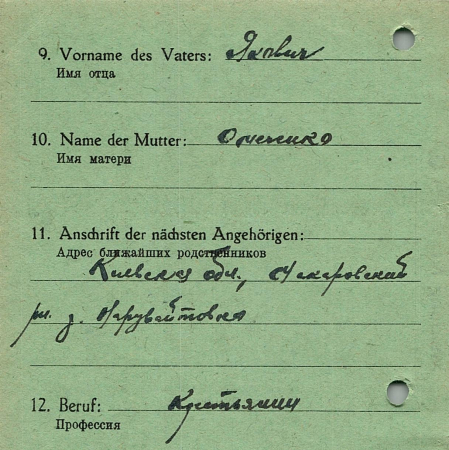 9. Vorname des Vaters: Якович
Имя отца
10. Name der Mutter: Онченко
Имя матери
11. Anschrift der nächsten Angehörigen:
Адрес ближайших родственников
Киевская обл., Макаровский
12. Beruf: Крестьянин
Профессия